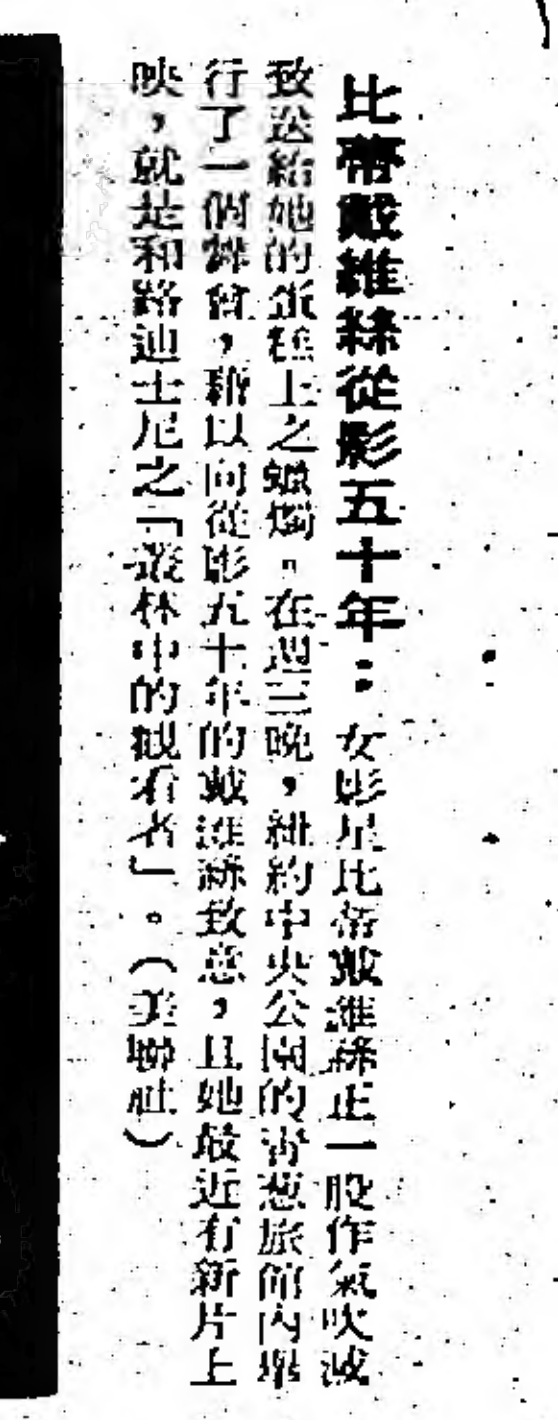 比蒂戴維絲從影五十年：女影星比蒂戴維絲正一股作氣吹滅
致送給她的蛋糕上之蠟燭。在週三晚，紐約中央公園的青葱旅館內舉
行了一個舞會，藉以向從影五十年的戴維絲致意，且她最近有新片上
映，就是和路迪士尼之「叢林中的觀看者」。（美聯社）